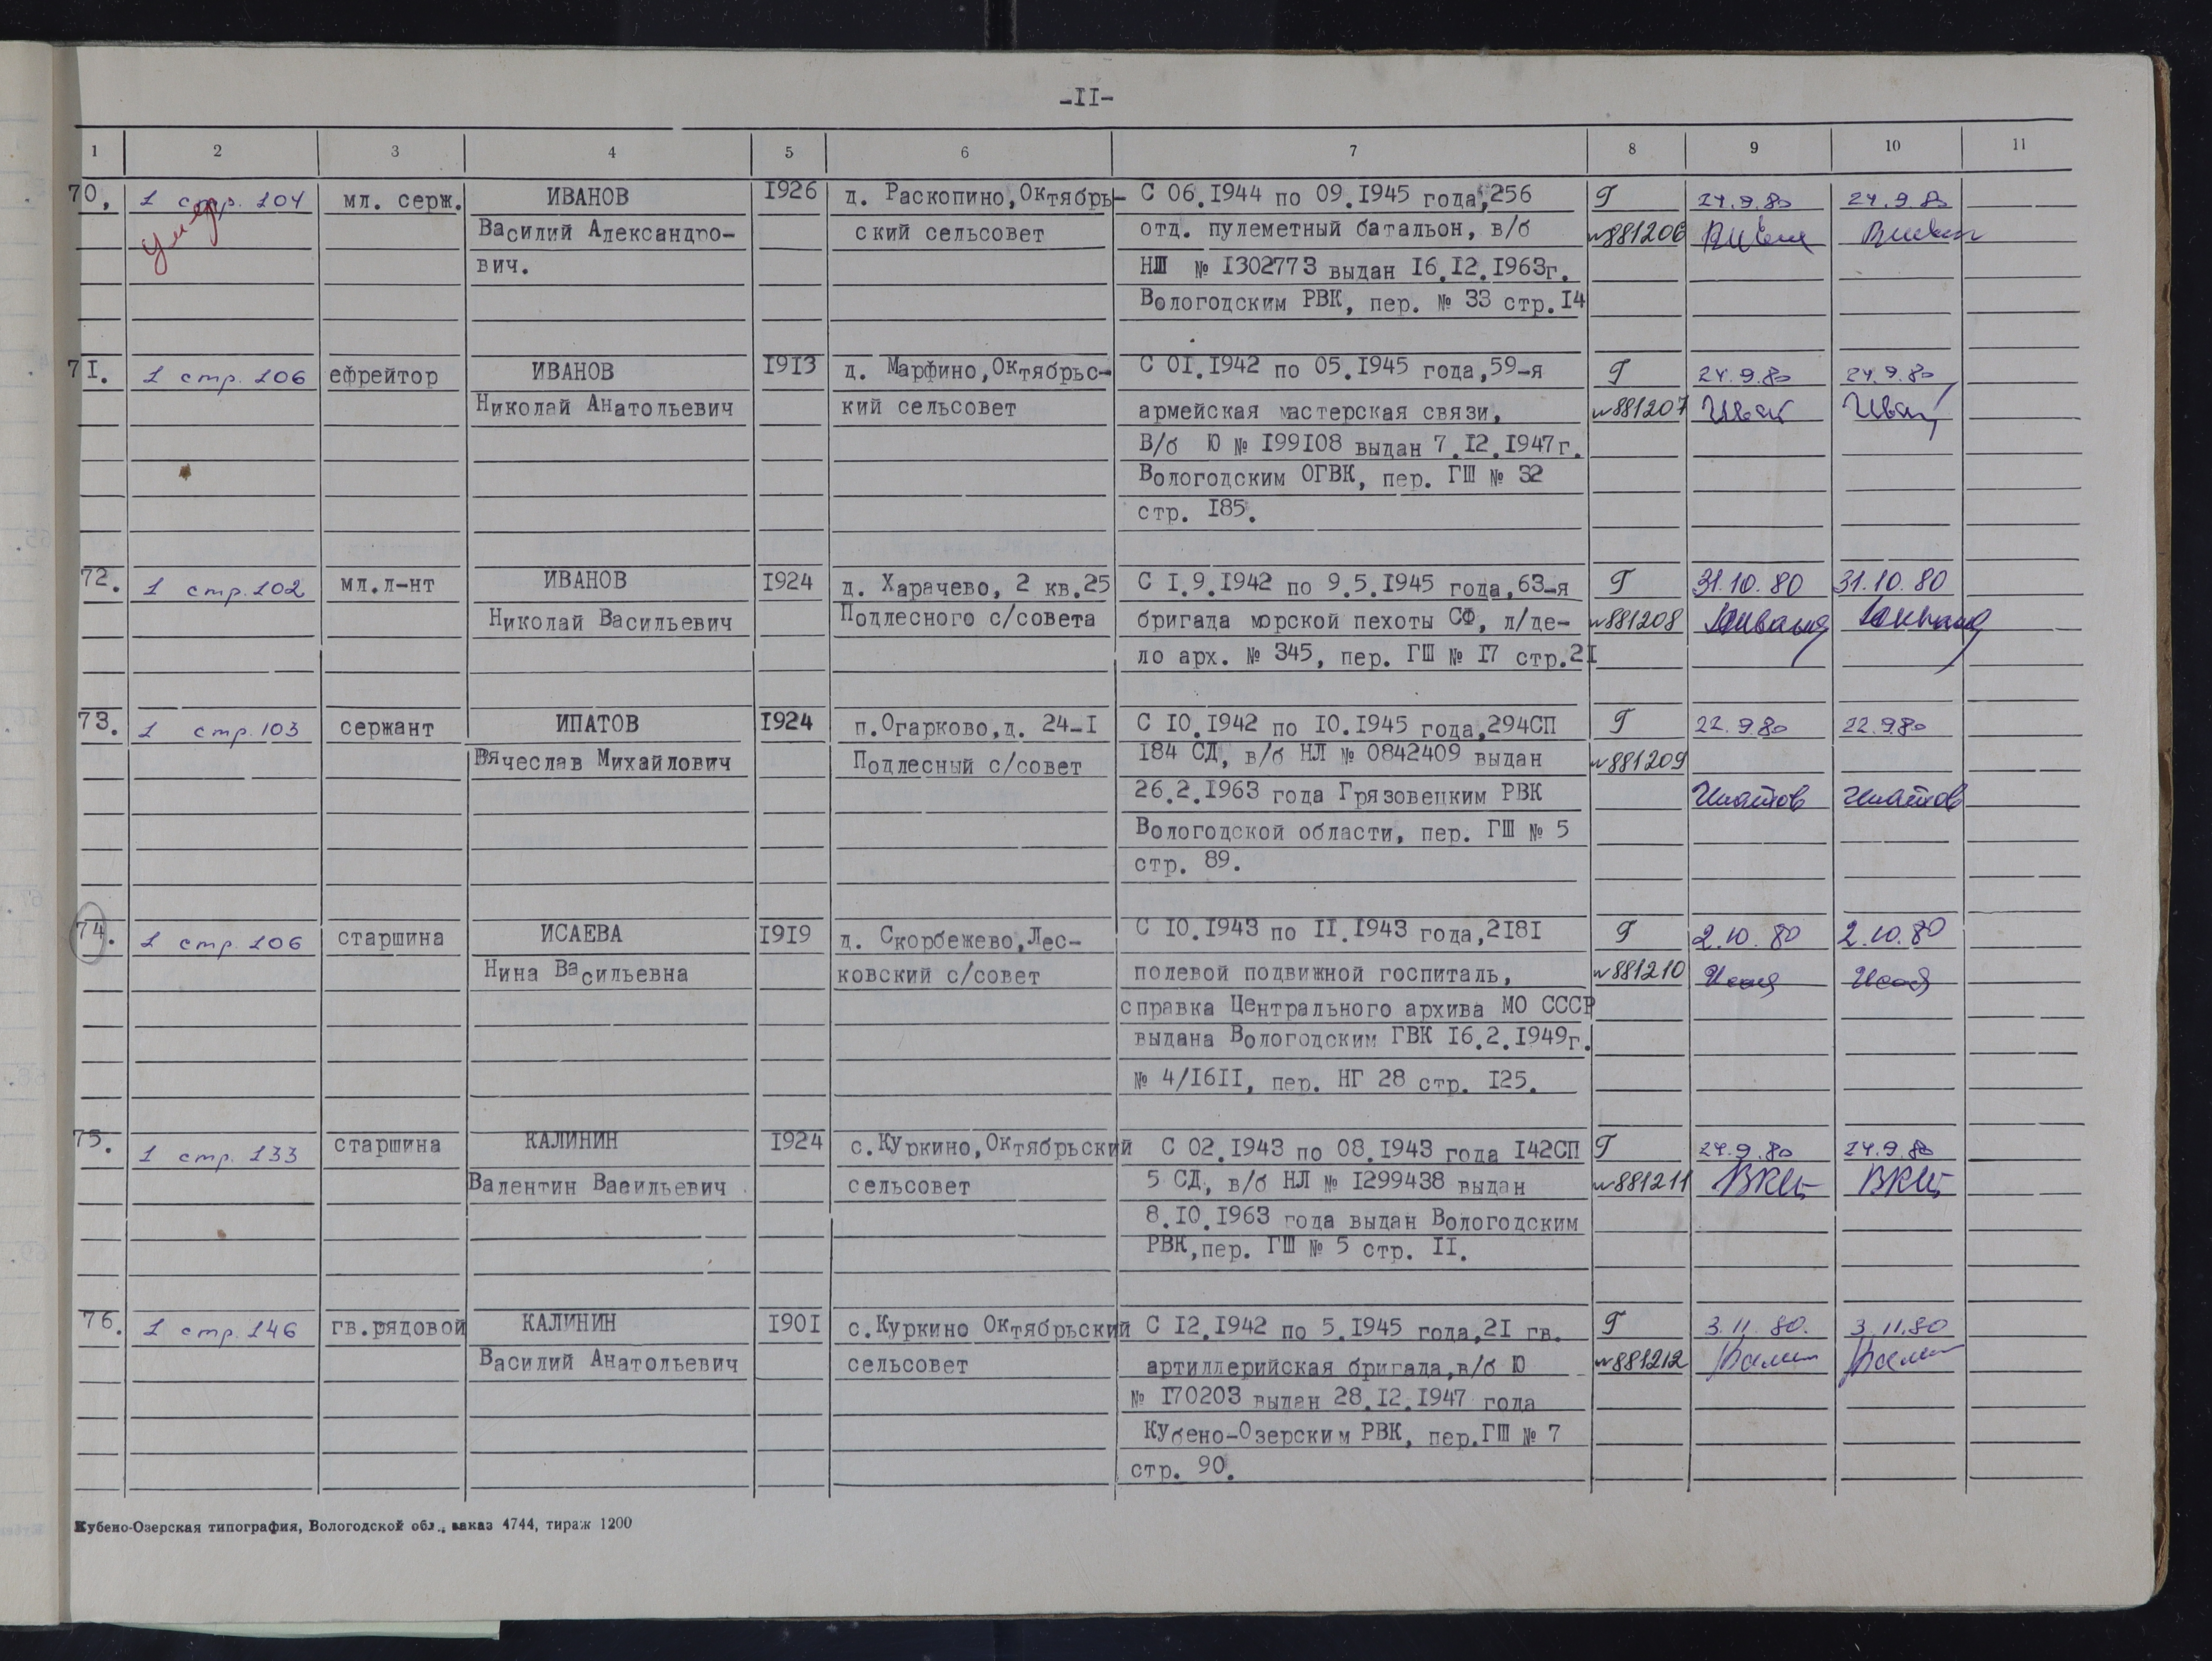 -II-
1 2 3 4 5 6 7 8 9 10 11
70, 1 стр. 104 мл. серж. ИВАНОВ 1926 д. Раскопино, Октябрь- С 06.1944 по 09.1945 года, 256 Г 24.9.80 24.9.80
Василий Александро- ский сельсовет отд. пулеметный батальон, в/б №881206
вич. НШ № 1302773 выдан 16.12.1963г.
Вологодским РВК, пер. № 33 стр.14
71. 1 стр. 106 ефрейтор ИВАНОВ 1913 д. Марфино, Октябрьс- С 01.1942 по 05.1945 года, 59-я Г 24.9.80 24.9.80
Николай Анатольевич кий сельсовет армейская мастерская связи, №881207
В/б Ю № 199108 выдан 7.12.1947г.
Вологодским ОГВК, пер. ГШ № 32
стр. 185.
72. 1 стр. 102 мл.л-нт ИВАНОВ 1924 д. Харачево, 2 кв.25 С 1.9.1942 по 9.5.1945 года, 63-я Г 31.10.80 31.10.80
Николай Васильевич Подлесного с/совета бригада морской пехоты СФ, л/де- №881208
ло арх. № 345, пер. ГШ № 17 стр.21
73. 1 стр. 103 сержант ИПАТОВ 1924 п.Огарково, д. 24-1 С 10.1942 по 10.1945 года, 294СП Г 22.9.80 22.9.80
Вячеслав Михайлович Подлесный с/совет 184 СД, в/б НЛ № 0842409 выдан №881209
26.2.1963 года Грязовецким РВК Ипатов Ипатов
Вологодской области, пер. ГШ № 5
стр. 89.
74. 1 стр. 106 старшина ИСАЕВА 1919 д. Скорбежево, Лес- С 10.1943 по 11.1943 года, 2181 Г 2.10.80 2.10.80
Нина Васильевна ковский с/совет полевой подвижной госпиталь, №881210
справка Центрального архива МО СССР
выдана Вологодским ГВК 16.2.1949г.
№ 4/1611, пер. НГ 28 стр. 125.
75. 1 стр. 133 старшина КАЛИНИН 1924 с.Куркино, Октябрьский С 02.1943 по 08.1943 года 142СП Г 24.9.80 24.9.80
Валентин Васильевич сельсовет 5 СД, в/б НЛ № 1299438 выдан №881211
8.10.1963 года выдан Вологодским
РВК, пер. ГШ № 5 стр. 11.
76. 1 стр. 146 гв.рядовой КАЛИНИН 1901 с.Куркино Октябрьский С 12.1942 по 5.1945 года, 21 гв. Г 3.11.80. 3.11.80
Василий Анатольевич сельсовет артиллерийская бригада, в/б Ю №881212
№ 170203 выдан 28.12.1947 года
Кубено-Озерским РВК, пер.ГШ № 7
стр. 90.
Кубено-Озерская типография, Вологодской обл., заказ 4744, тираж 1200